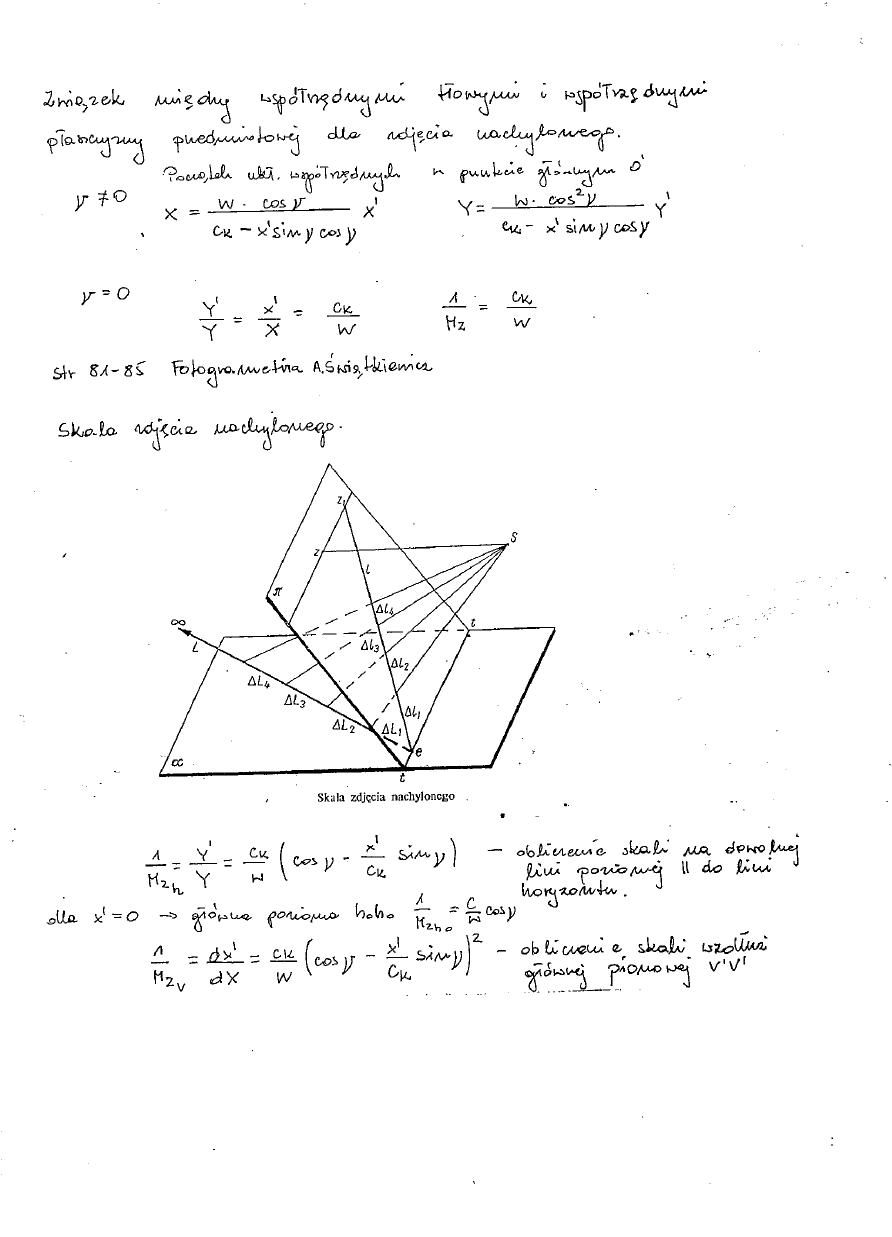 Związek między współrzędnymi tłowymi i współrzędnymi
płaszczyzny przedmiotowej dla zdjęcia nachylonego.
Początek ukł. współrzędnych w punkcie głównym O'
ν ≠ 0 X = W · cos ν / (ck − x' sin ν cos ν) X' Y = W · cos² ν / (ck − x' sin ν cos ν) Y'
ν = 0 Y'/Y = x'/X = ck/W 1/Mz = ck/W
str 81-85 Fotogrametria A. Świątkiewicz
Skala zdjęcia nachylonego.
z₁
S
z
l
π
Δl₄
∞
t
L
Δl₃
Δl₂
ΔL₄
ΔL₃
Δl₁
ΔL₂
ΔL₁
e
α
t
Skala zdjęcia nachylonego
1/Mzh = Y'/Y = ck/W (cos ν − x'/ck sin ν) – obliczenie skali na dowolnej
linii poziomej || do linii
horyzontu.
dla x' = 0 → główna pozioma hoho 1/Mzho = C/W cos ν
1/Mzv = dx'/dX = ck/W (cos ν − x'/Ck sin ν)² – obliczenie skali wzdłuż
głównej pionowej V'V'